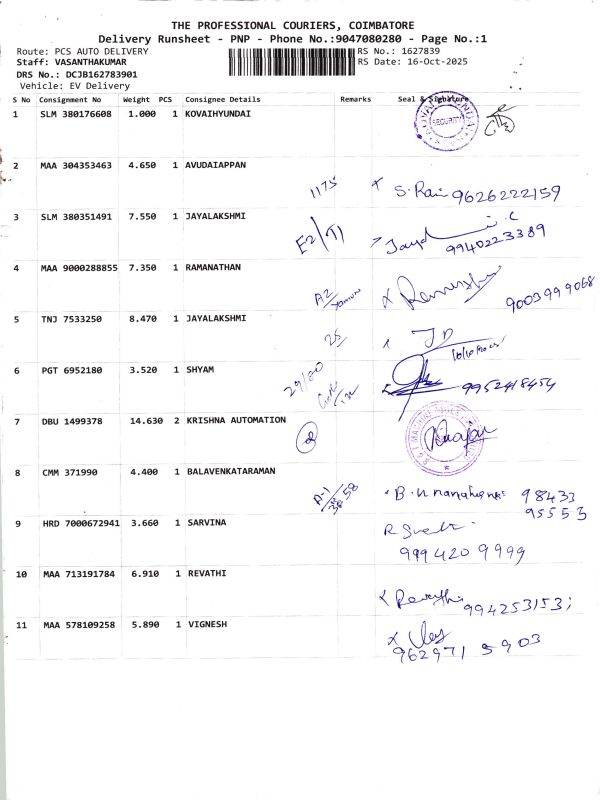 THE PROFESSIONAL COURIERS, COIMBATORE
Delivery Runsheet - PNP - Phone No.:9047080280 - Page No.:1
Route: PCS AUTO DELIVERY RS No.: 1627839
Staff: VASANTHAKUMAR RS Date: 16-Oct-2025
DRS No.: DCJB162783901
Vehicle: EV Delivery
S No Consignment No Weight PCS Consignee Details Remarks Seal & Signature
1 SLM 380176608 1.000 1 KOVAIHYUNDAI
SECURITY
2 MAA 304353463 4.650 1 AVUDAIAPPAN
1175 S. Rani 9626222159
3 SLM 380351491 7.550 1 JAYALAKSHMI
E2/T1 9940223389
4 MAA 9000288855 7.350 1 RAMANATHAN
A2 9003999068
5 TNJ 7533250 8.470 1 JAYALAKSHMI
25 JD
6 PGT 6952180 3.520 1 SHYAM
29/80 9952418454
7 DBU 1499378 14.630 2 KRISHNA AUTOMATION
2
8 CMM 371990 4.400 1 BALAVENKATARAMAN
A-1 98433
95553
9 HRD 7000672941 3.660 1 SARVINA
9994209999
10 MAA 713191784 6.910 1 REVATHI
Revathi
11 MAA 578109258 5.890 1 VIGNESH
9629715903